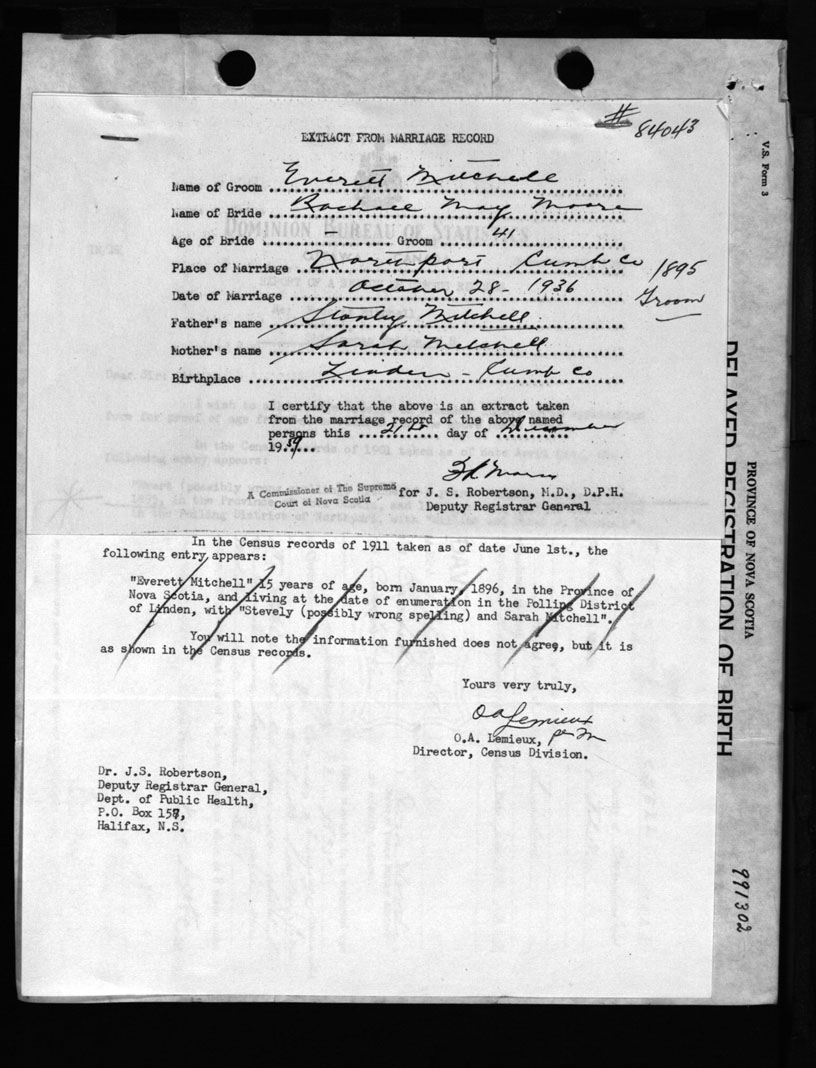 # 84043
EXTRACT FROM MARRIAGE RECORD
Name of Groom Everett Mitchell
Name of Bride Rachael May Moore
Age of Bride - Groom 41
Place of Marriage Northport Cumb Co 1895
Date of Marriage October 28 - 1936 Groom
Father's name Stanley Mitchell
Mother's name Sarah Mitchell
Birthplace Linden - Cumb Co
I certify that the above is an extract taken
from the marriage record of the above named
persons this 21st day of December
19 59
A Commissioner of The Supreme
Court of Nova Scotia
for J. S. Robertson, M.D., D.P.H.
Deputy Registrar General
In the Census records of 1911 taken as of date June 1st., the
following entry appears:
"Everett Mitchell" 15 years of age, born January, 1896, in the Province of
Nova Scotia, and living at the date of enumeration in the Polling District
of Linden, with "Stevely (possibly wrong spelling) and Sarah Mitchell".
You will note the information furnished does not agree, but it is
as shown in the Census records.
Yours very truly,
O A Lemieux
O.A. Lemieux, per M
Director, Census Division.
Dr. J.S. Robertson,
Deputy Registrar General,
Dept. of Public Health,
P.O. Box 157,
Halifax, N.S.
V.S. Form 3
PROVINCE OF NOVA SCOTIA
DELAYED REGISTRATION OF BIRTH
991302